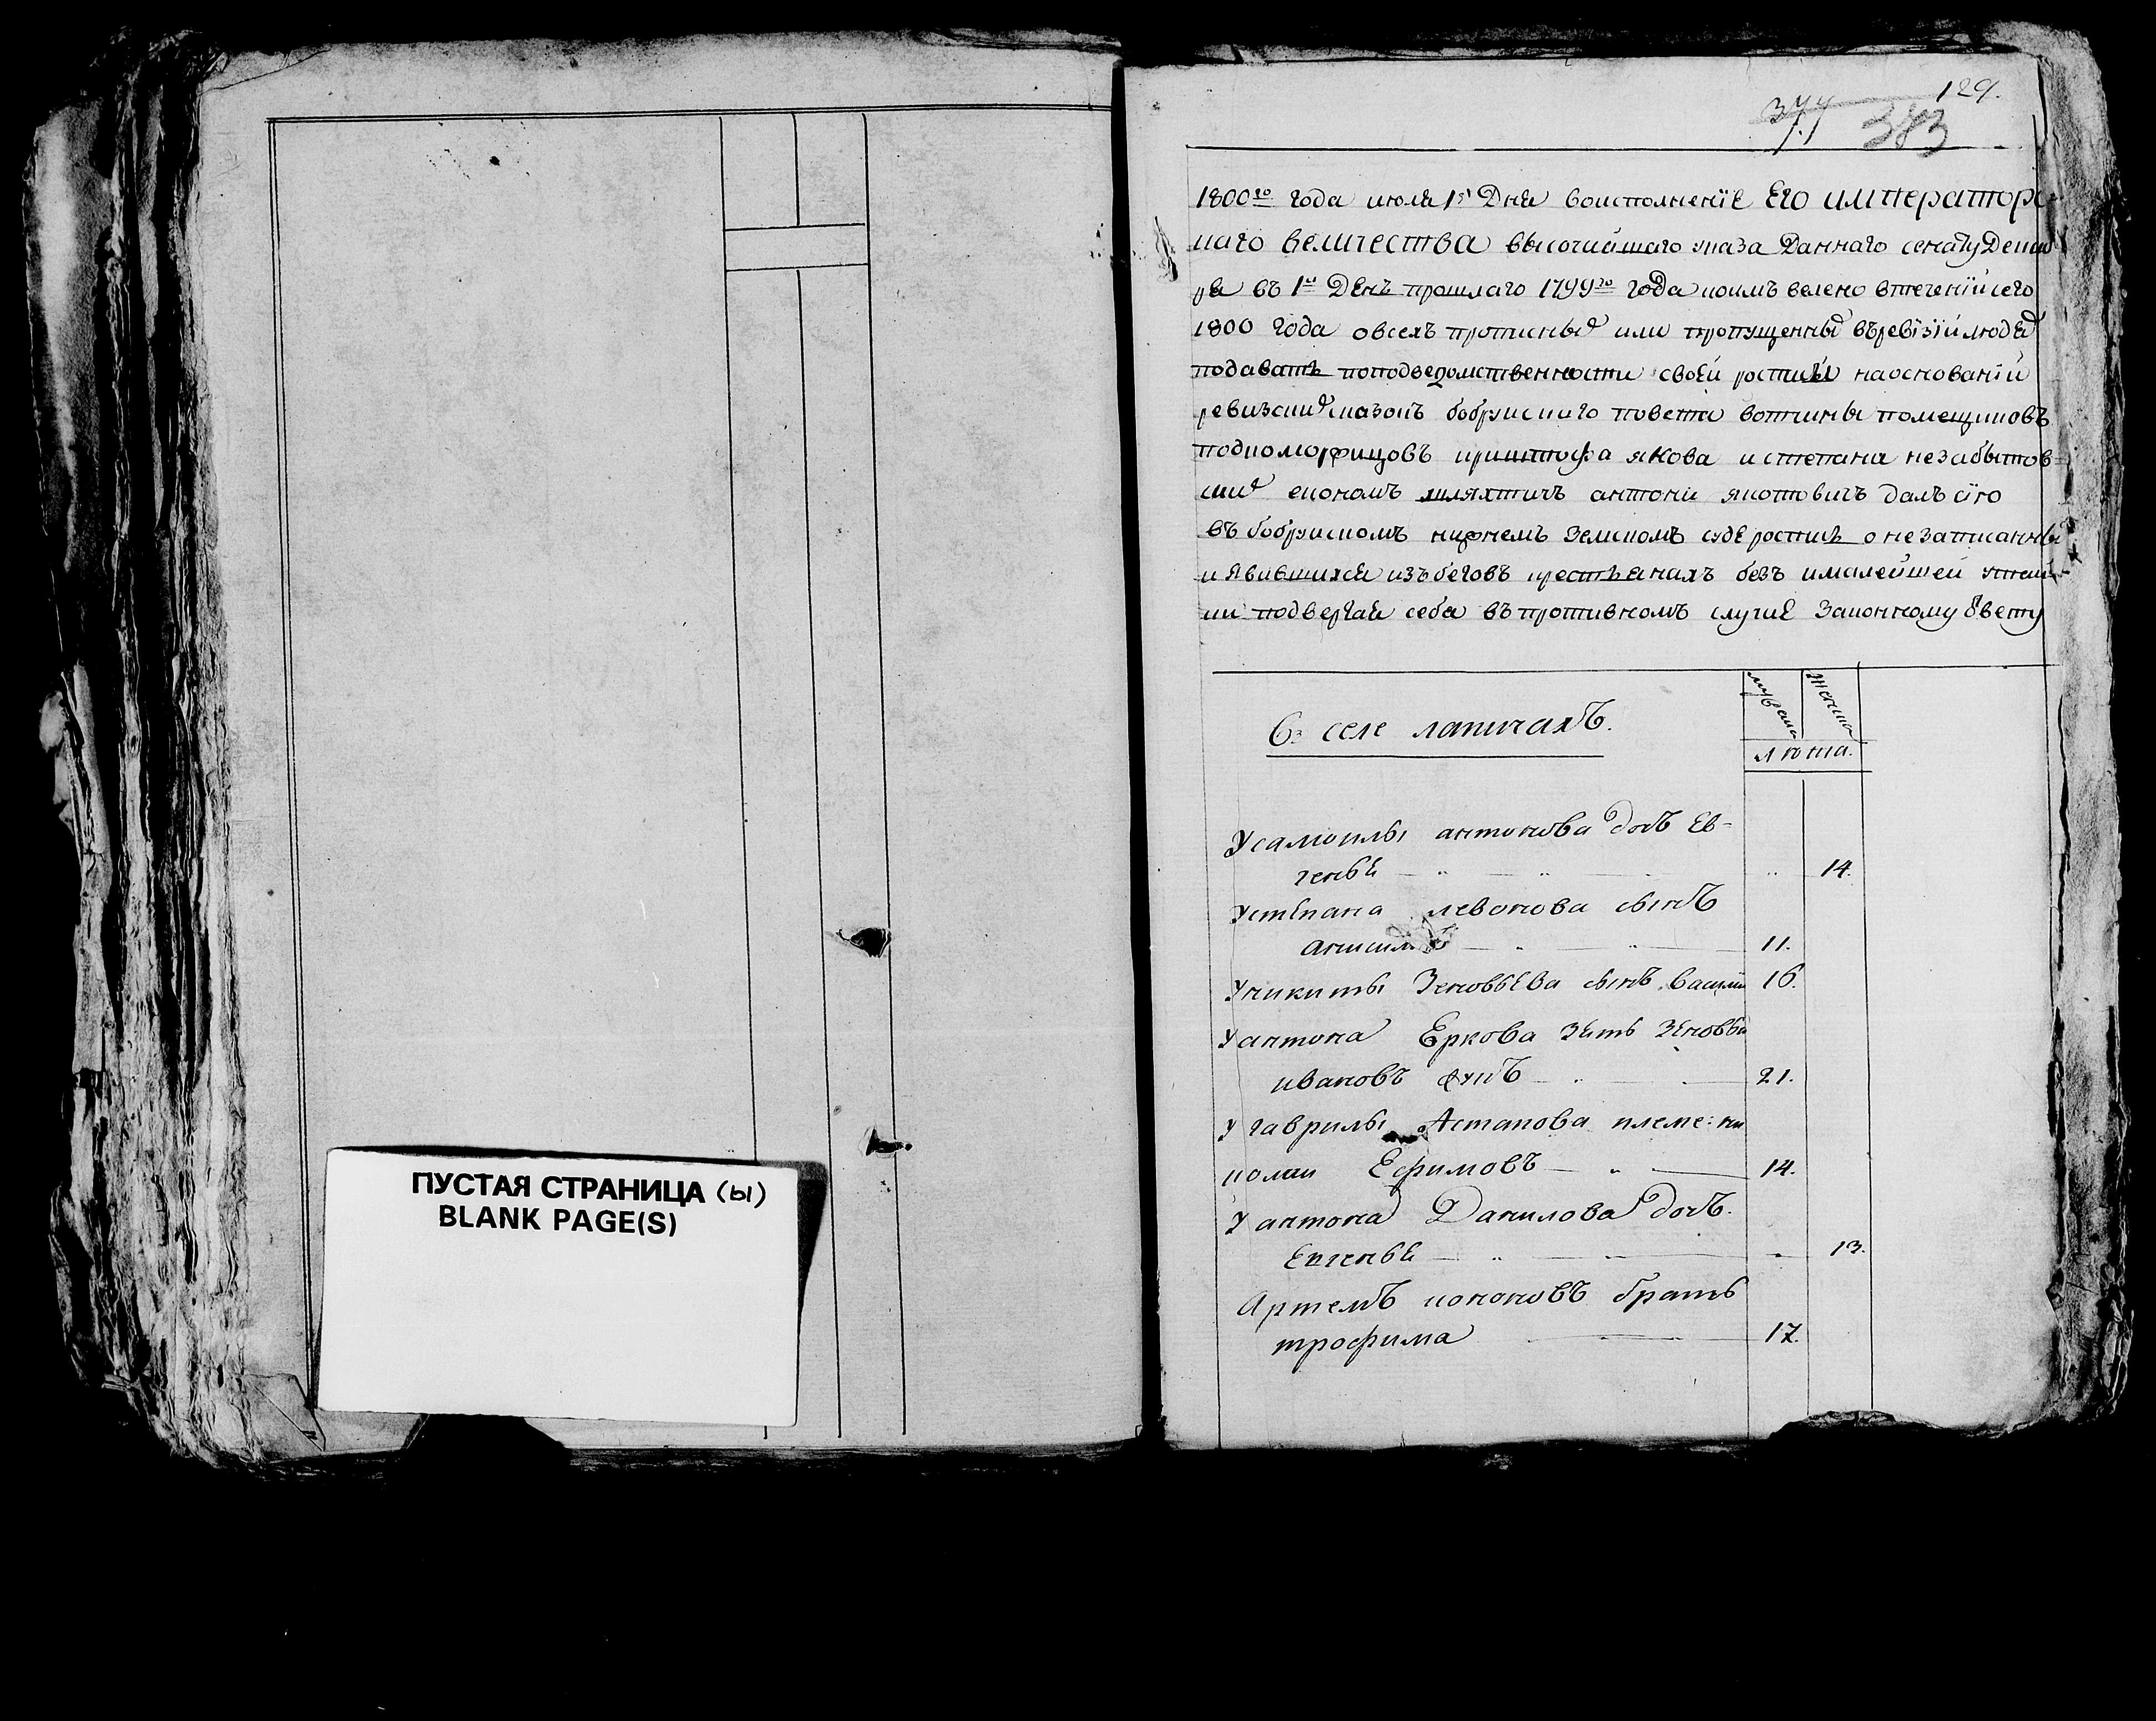 ПУСТАЯ СТРАНИЦА (ы)
BLANK PAGE(S)
129.
377 383
1800го года июля 1го Дня воисполнение Его император
скаго величества высочайшаго указа Даннаго сенату Декаб
ря въ 1й День прошлаго 1799го года коимъ велено втечении сего
1800 года овсехъ прописныхъ или пропущенныхъ въревизии людей
подавать поподведомственности своей росписи наосновании
ревизскихъ сказокъ бобруискаго повета вотчины помещиковъ
криштофа якова истепана незабытов=
ских економъ шляхтичъ антони далъ сию
въ бобруискомъ нижнемъ Земскомъ суде роспись о незаписанных
и явившихся изъ беговъ крестьянахъ безъ ималейшей утай
ки подвергая себя въ противномъ случае Законному ответу
Въ селе лапичахъ.
мужеска женска
лета.
У самоилы антонова дочь Ев-
генья 14.
У степана левонова сынъ
анисимъ 11.
У никиты Зеновьева сынъ Васили 16.
У антона Еркова зять Зеновьи
ивановъ 21.
У гаврилы Астапова племе: ни
Ефимовъ 14.
У антона Данилова дочь.
Евгенья 13.
Артемъ кононовъ братъ
трофима 17.